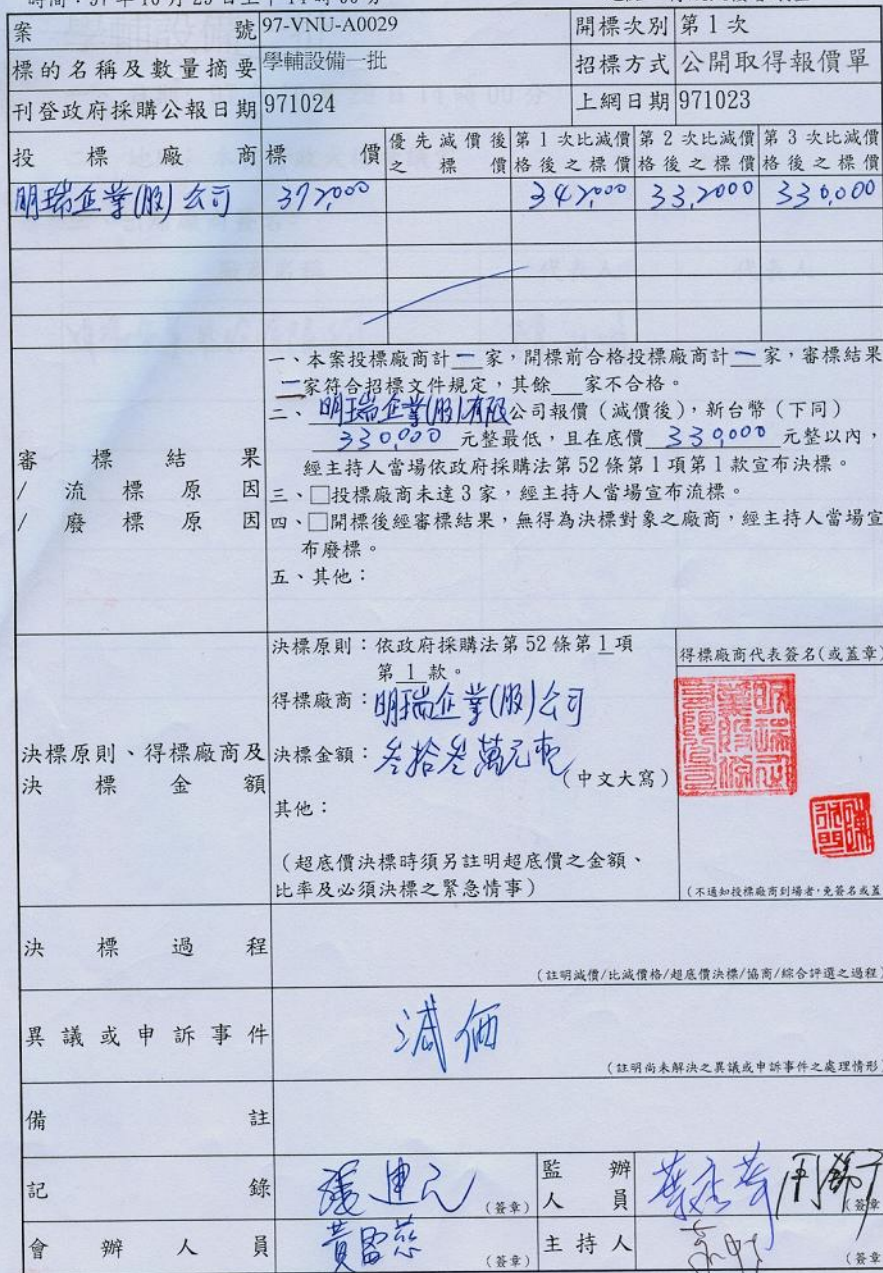 案號 97-VNU-A0029 開標次別 第 1 次
標的名稱及數量摘要 學輔設備一批 招標方式 公開取得報價單
刊登政府採購公報日期 971024 上網日期 971023
投標廠商 標價 優先減價後之標價 第 1 次比減價格後之標價 第 2 次比減價格後之標價 第 3 次比減價格後之標價
明瑞企業(股)公司 372,000 342,000 332,000 330,000
審標結果
/流標原因
/廢標原因
一、本案投標廠商計一家,開標前合格投標廠商計一家,審標結果
一家符合招標文件規定,其餘__家不合格。
二、明瑞企業(股)有限公司報價(減價後),新台幣(下同)
330,000 元整最低,且在底價 330,000 元整以內,
經主持人當場依政府採購法第 52 條第 1 項第 1 款宣布決標。
三、□投標廠商未達 3 家,經主持人當場宣布流標。
四、□開標後經審標結果,無得為決標對象之廠商,經主持人當場宣
布廢標。
五、其他:
決標原則、得標廠商及
決標金額
決標原則:依政府採購法第 52 條第 1 項
第 1 款。
得標廠商:明瑞企業(股)公司
決標金額:叁拾叁萬元整
(中文大寫)
其他:
(超底價決標時須另註明超底價之金額、
比率及必須決標之緊急情事)
得標廠商代表簽名(或蓋章)
(不通知投標廠商到場者,免簽名或蓋
決標過程
(註明減價/比減價格/超底價決標/協商/綜合評選之過程)
異議或申訴事件
減價
(註明尚未解決之異議或申訴事件之處理情形
備註
記錄 (簽章) 監辦人員 (簽章
會辦人員 (簽章) 主持人 (簽章